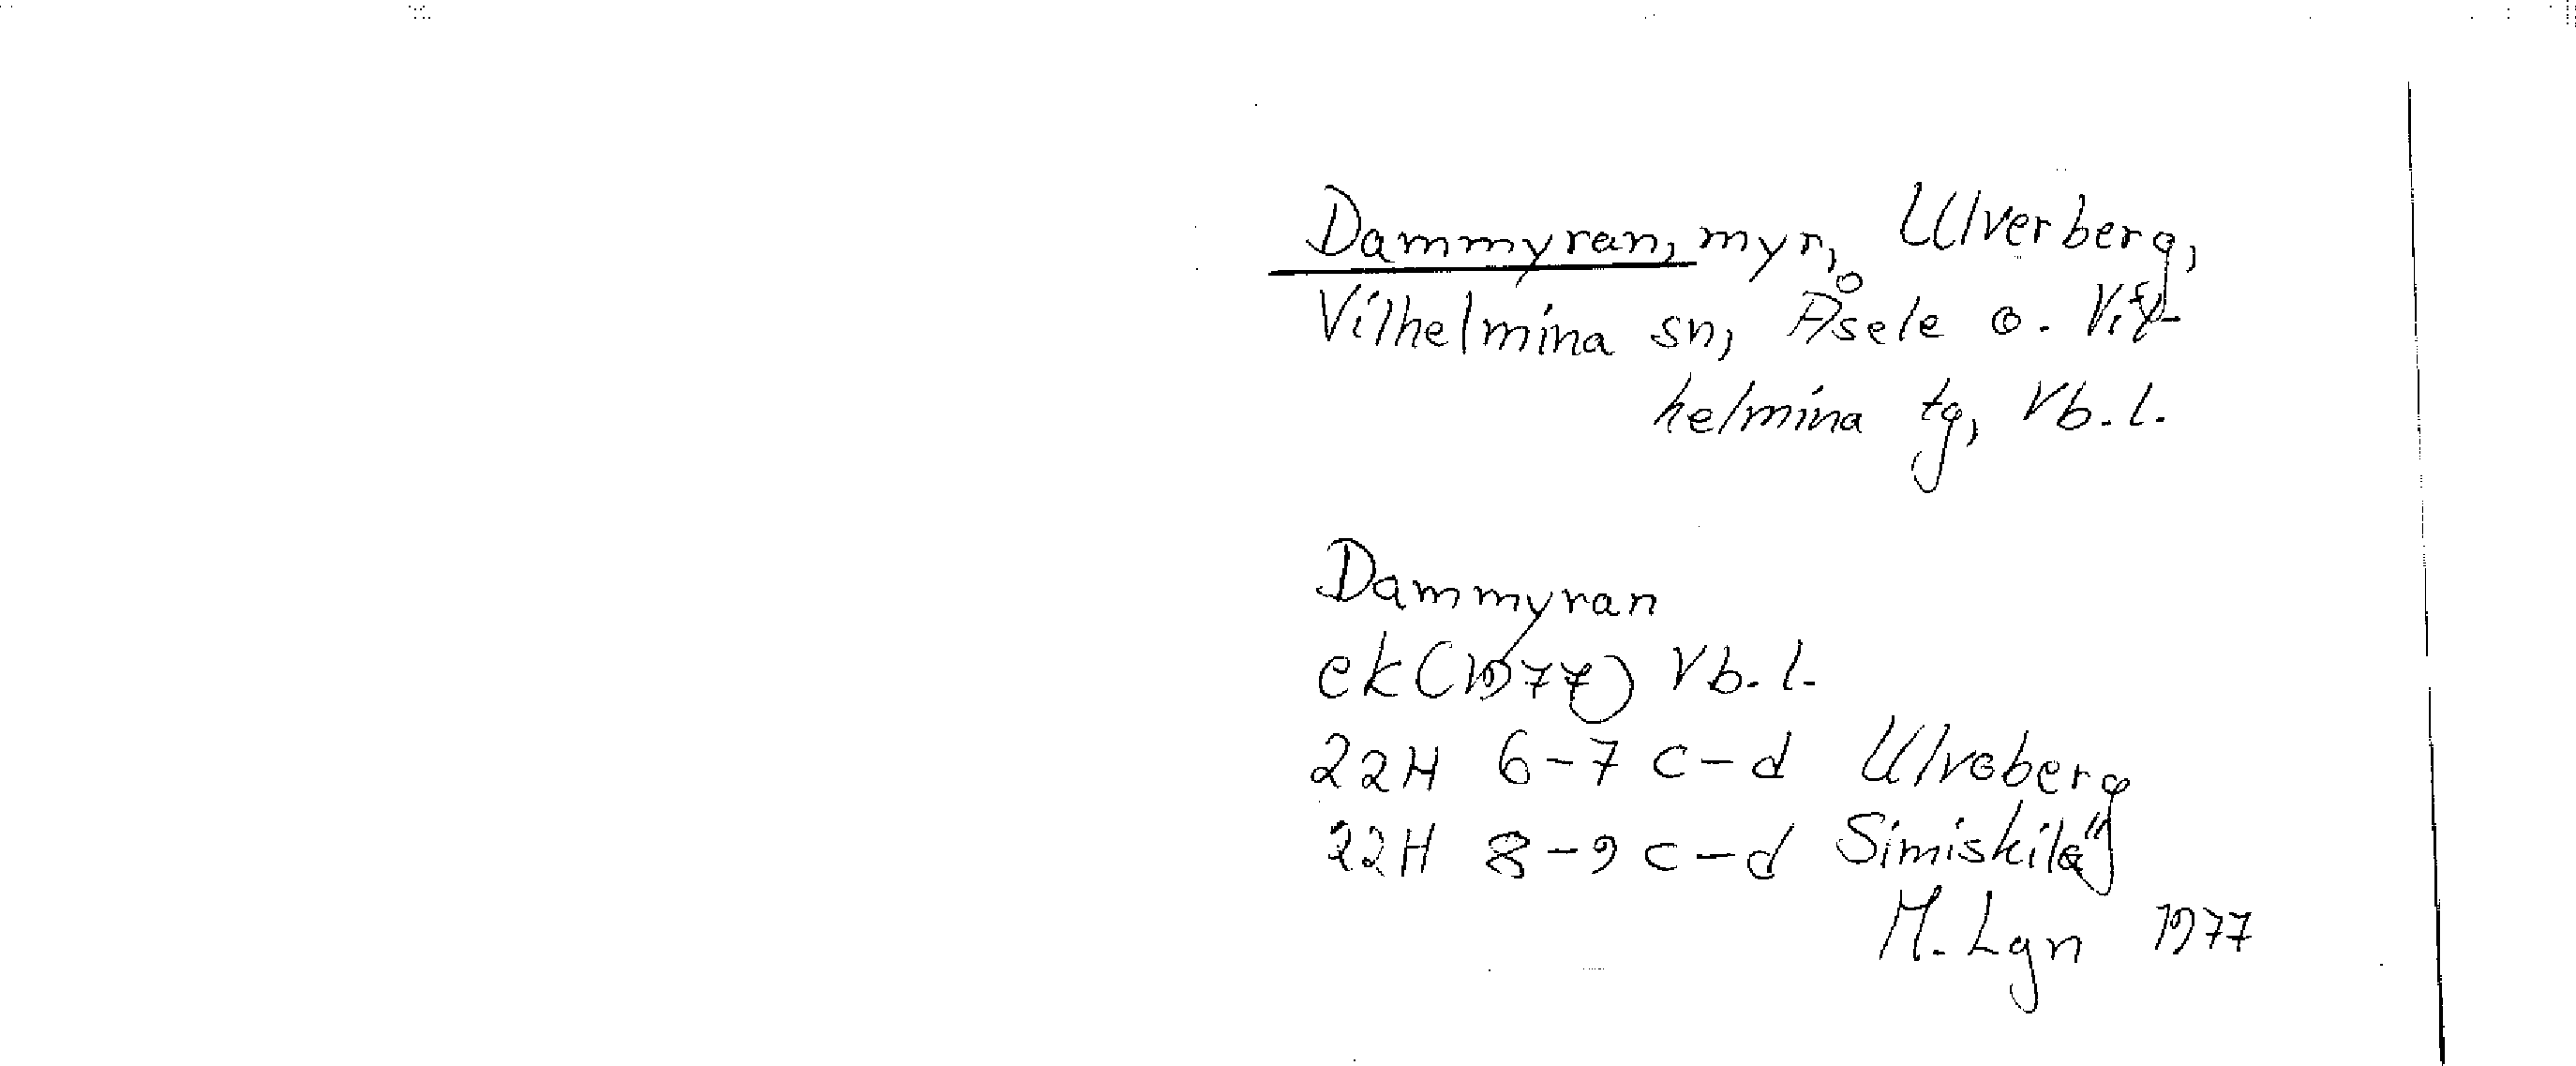 Dammyran, myr, Ulverberg,
Vilhelmina sn, Åsele o. Vil-
helmina tg, Vb.l.
Dammyran
ek (1977) Vb.l.
22H 6-7 c-d Ulvoberg
22H 8-9 c-d Simiskilä
M. Lgn 1977